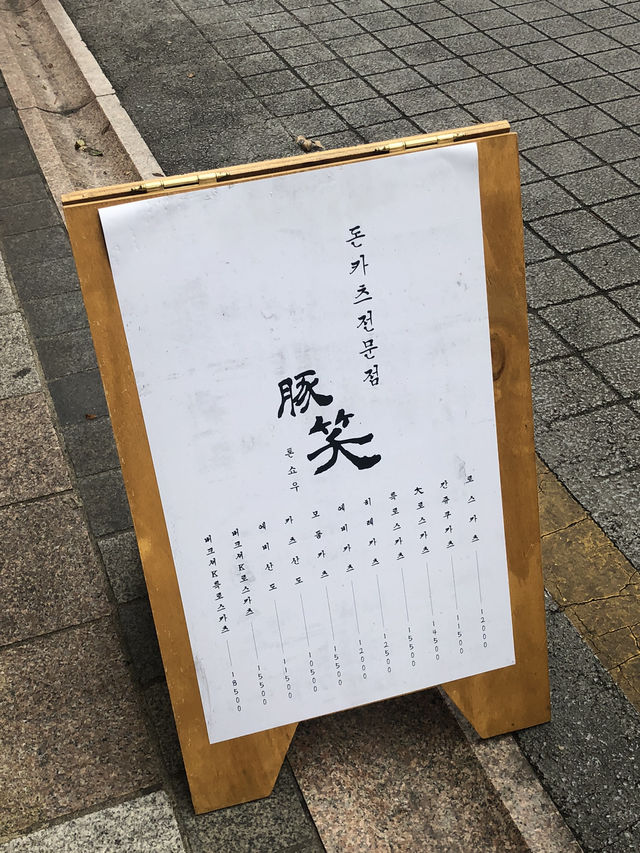 돈카츠전문점
豚笑
톤쇼우
로스카츠 12000
칸쥬쿠카츠 11500
大로스카츠 14500
특로스카츠 15500
히레카츠 12500
에비카츠 12000
모듬카츠 15500
카츠산도 10500
에비산도 11500
버크셔K로스카츠 15500
버크셔K특로스카츠 18500